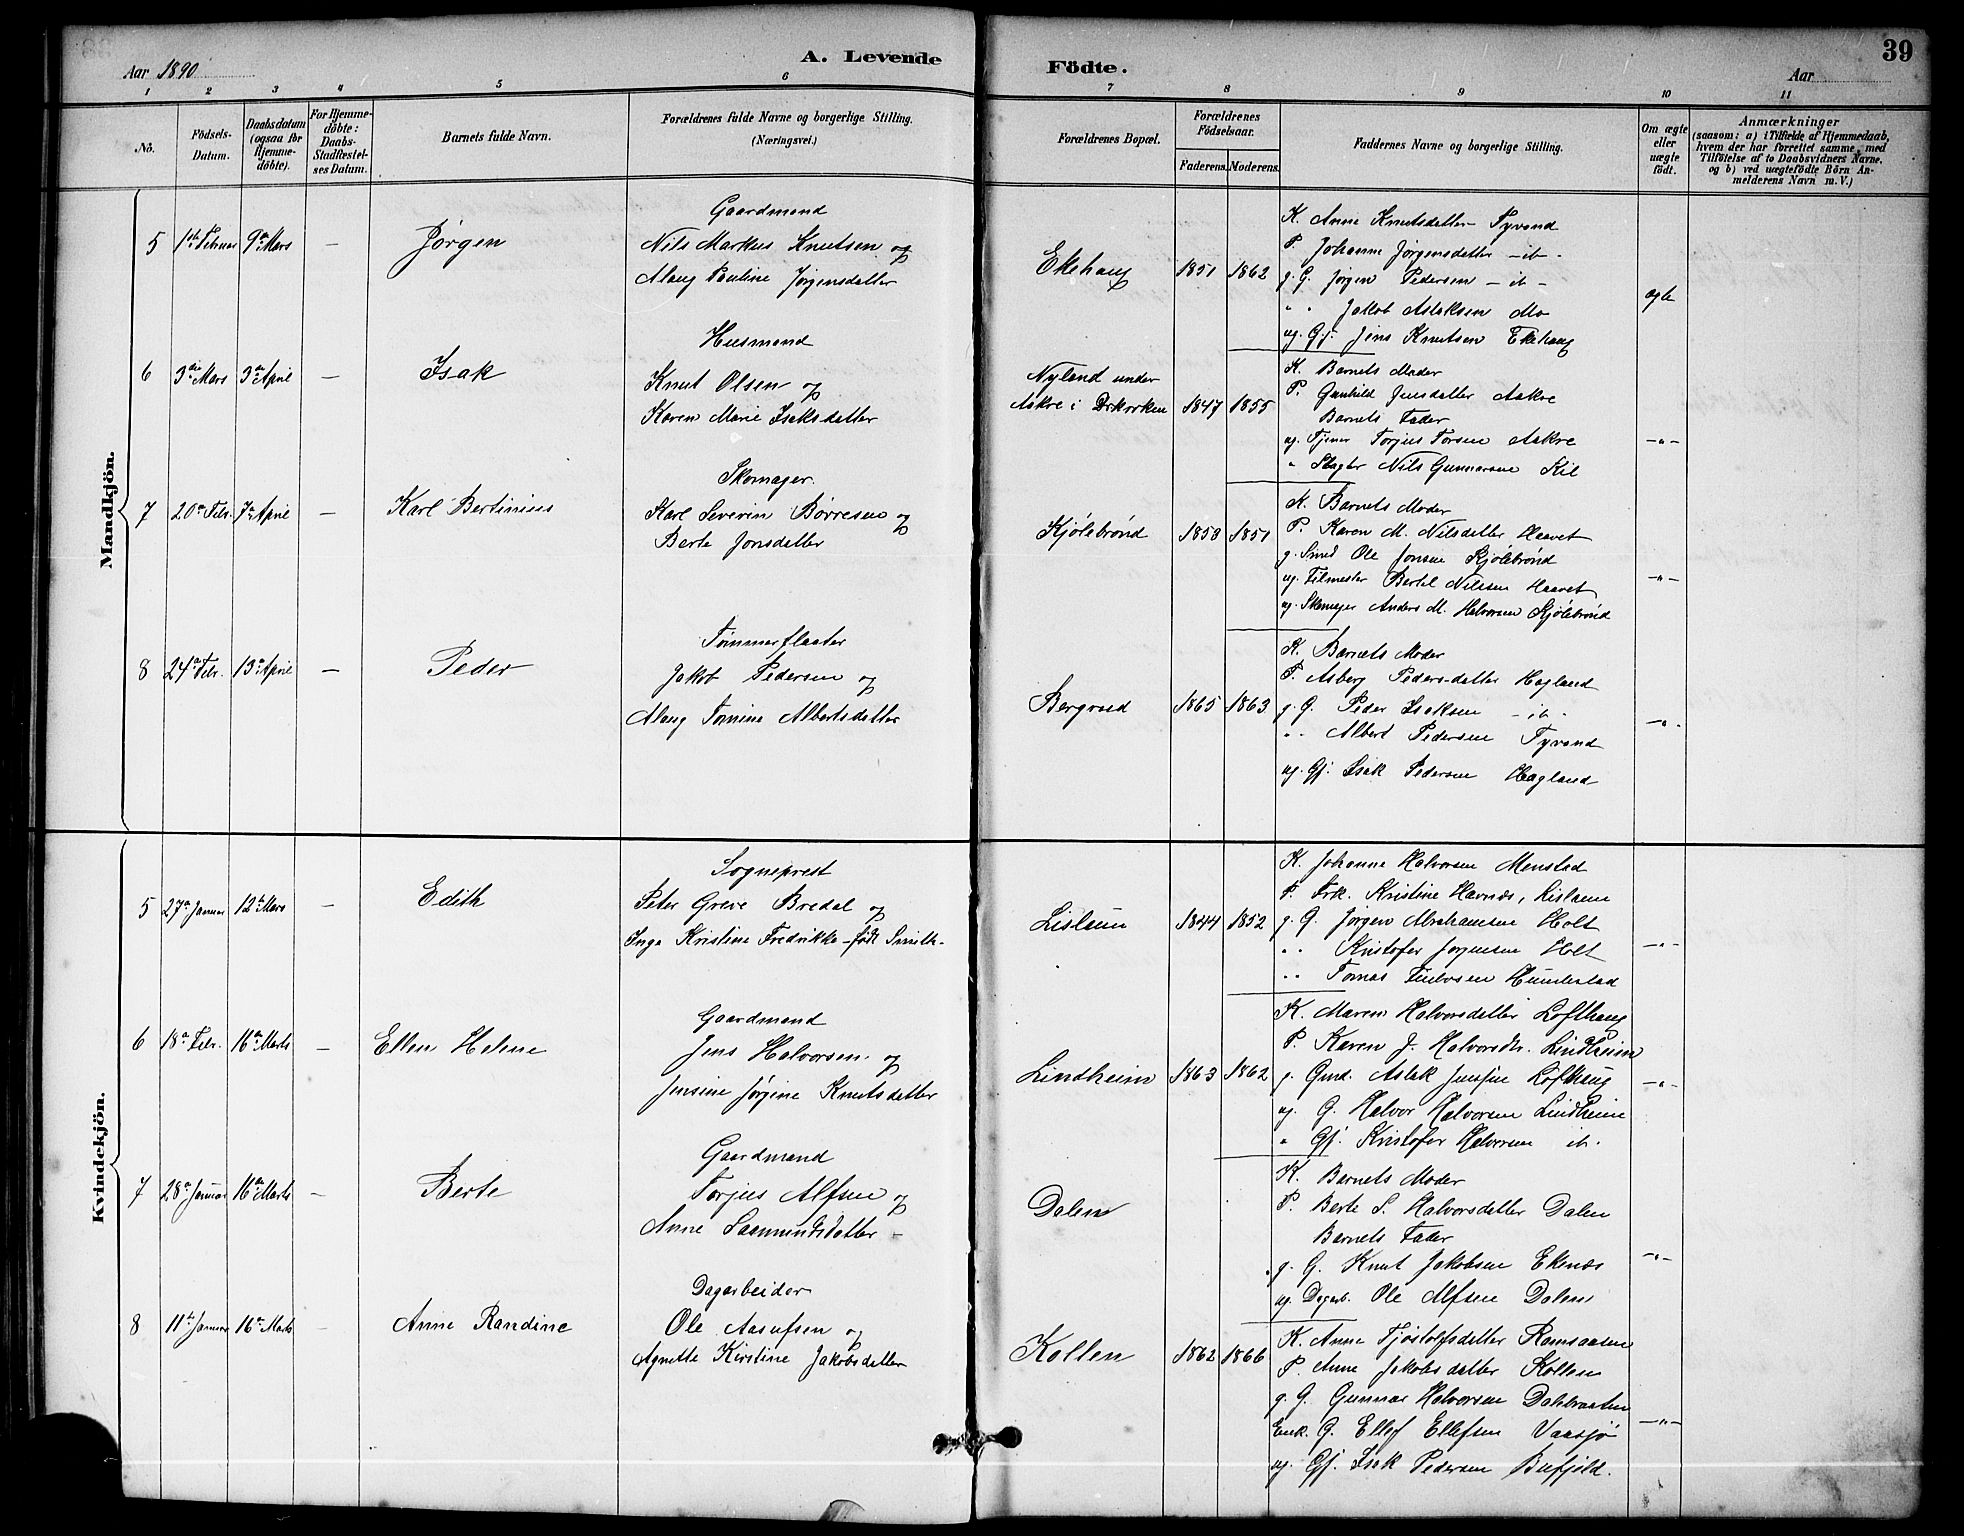 39
Aar 1890
A. Levende
Födte.
Aar
1 2 3 4 5 6 7 8 9 10 11
No.
Födsels-Datum.
Daabsdatum (ogsaa for Hjemme-döbte).
For Hjemme-döbte: Daabs-Stadfestel-ses Datum.
Barnets fulde Navn.
Forældrenes fulde Navne og borgerlige Stilling. (Næringsvei.)
Forældrenes Bopæl.
Forældrenes Födselsaar.
Faderens. Moderens.
Faddernes Navne og borgerlige Stilling.
Om ægte eller uægte födt.
Anmærkninger
(saasom: a) i Tilfælde af Hjemmedaab,
hvem der har forrettet samme, med
Tilföielse af to Daabsvidners Navne.
og b) ved uægtefödte Börn An-
melderens Navn m. V.)
Mandkjön.
5 1ste Februar 9de Mars — Jørgen
Gaardmand
Nils Markus Knutsen og
Aslaug Pauline Jørgensdatter
Ekehaug 1851 1862
K. Anne Knutsdatter Tyvand
P. Johanne Jørgensdatter — ib -
g. G. Jørgen Pedersen — ib —
" " Jakob Aslaksen Mo
ug. Gj. Jens Knutsen Ekehaug
ægte
6 3die Mars 3die April — Isak
Husmand
Knut Olsen og
Karen Marie Isaksdatter
Nyland under
Aakre i 1847 1855
K. Barnets Moder
P. Gunhild Jensdatter Aakre
Barnets Fader
ug. Tjener Torjus Torsen Aakre
" Slagter Nils Gunnarsen Kil
—"—
7 20de Febr. 7de April — Karl Bertinius
Skomager
Karl Severin Børresen og
Berte Jonsdatter
Kjölebrönd 1858 1851
K. Barnets Moder
P. Karen M. Nilsdatter Haavet
g. Smed Ole Jonsen Kjölebrönd
ug. Bertel Nilssen Haavet
ug. Skomager Anders M. Halvorsen Kjölebrönd
—"—
8 24de Febr. 13de April — Peder
Tømmerfløater
Jakob Pedersen og
Aslaug Tomine Albertsdatter
Bergrud 1865 1863
K. Barnets Moder
P. Asberg Pedersdatter Hagland
g. G. Peder Isaksen — ib -
" " Albert Pedersen Tyvand
ug. Gj. Isak Pedersen Hagland
—"—
Kvindekjön.
5 27de Januar 12te Mars — Edith
Sogneprest
Peter Greve Bredal og
Inga Kristine Fredrikke født Smith
Lislaun 1844 1852
K. Johanne Halvorsen Menstad
P. Frk. Kristine Havnæs, Lislaun
g. G. Jørgen Abrahamsen Holt
" " Kristofer Jørgensen Holt
" " Tomas Hunderstad
—"—
6 18de Febr. 16de Marts — Ellen Helene
Gaardmand
Jens Halvorsen og
Jensine Jørgine Knutsdatter
Lindheim 1863 1862
K. Maren Halvorsdatter Lofthaug
P. Karen J. Halvorsdtr. Lindheim
g. Gmd. Aslak Jensen Lofthaug
ug. G. Halvor Halvorsen Lindheim
" Gj. Kristofer Halvorsen ib.
—"—
7 28de Januar 16de Marts — Berte
Gaardmand
Torjus Alfsen og
Anne Saamundsdatter
Dalen
K. Barnets Moder
P. Berte S. Halvorsdatter Dalen
Barnets Fader
g. G. Knut Jakobsen Ekenæs
ug. Dagarb. Ole Alfsen Dalen
—"—
8 11te Januar 16de Marts — Anne Randine
Dagarbeider
Ole Aasufsen og
Agnette Kirstine Jakobsdatter
Kollen 1862 1866
K. Anne Tjøstolfsdatter Ramsaasen
P. Anne Jakobsdatter Kollen
g. G. Gunnar Halvorsen Dalsbraaten
Enk. G. Ellef Ellefsen Vaasjø
ug. Gj. Isak Pedersen Bufjeld.
—"—